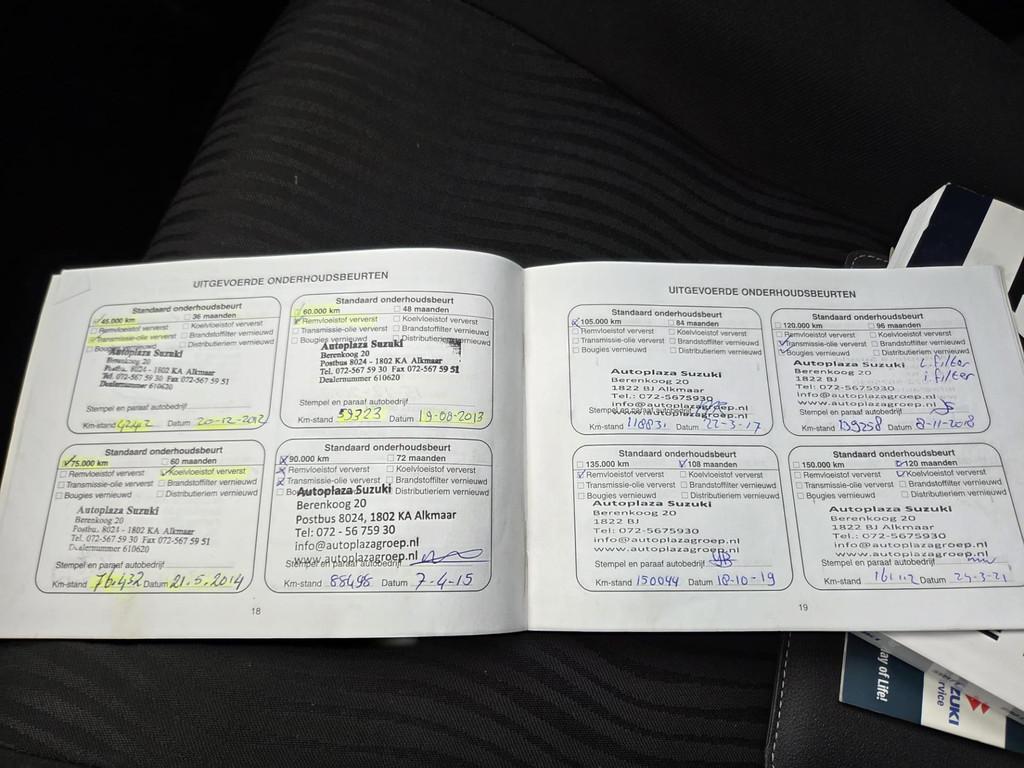 UITGEVOERDE ONDERHOUDSBEURTEN
Standaard onderhoudsbeurt
45.000 km 36 maanden
Remvloeistof ververst Koelvloeistof ververst
Transmissie-olie ververst Brandstoffilter vernieuwd
Distributieriem vernieuwd
Autoplaza Suzuki
Berenkoog 20
Postbus 8024 - 1802 KA Alkmaar
Tel. 072-567 59 30 Fax 072-567 59 51
Dealernummer 610620
Stempel en paraaf autobedrijf
Km-stand Datum 20-12-2012
Standaard onderhoudsbeurt
60.000 km 48 maanden
Remvloeistof ververst Koelvloeistof ververst
Transmissie-olie ververst Brandstoffilter vernieuwd
Bougies vernieuwd Distributieriem vernieuwd
Autoplaza Suzuki
Berenkoog 20
Postbus 8024 - 1802 KA Alkmaar
Tel. 072-567 59 30 Fax 072-567 59 51
Dealernummer 610620
Stempel en paraaf autobedrijf
Km-stand 59723 Datum 19-08-2013
Standaard onderhoudsbeurt
75.000 km 60 maanden
Remvloeistof ververst Koelvloeistof ververst
Transmissie-olie ververst Brandstoffilter vernieuwd
Bougies vernieuwd Distributieriem vernieuwd
Autoplaza Suzuki
Berenkoog 20
Postbus. 8024 - 1802 KA Alkmaar
Tel. 072-567 59 30 Fax 072-567 59 51
Dealernummer 610620
Stempel en paraaf autobedrijf
Km-stand 76.432 Datum 21.5.2014
Standaard onderhoudsbeurt
90.000 km 72 maanden
Remvloeistof ververst Koelvloeistof ververst
Transmissie-olie ververst Brandstoffilter vernieuwd
Distributieriem vernieuwd
Autoplaza Suzuki
Berenkoog 20
Postbus 8024, 1802 KA Alkmaar
Tel: 072 - 56 759 30
info@autoplazagroep.nl
www.autoplazagroep.nl
Stempel en paraaf autobedrijf
Km-stand 88498 Datum 7-4-15
18
UITGEVOERDE ONDERHOUDSBEURTEN
Standaard onderhoudsbeurt
105.000 km 84 maanden
Remvloeistof ververst Koelvloeistof ververst
Transmissie-olie ververst Brandstoffilter vernieuwd
Bougies vernieuwd Distributieriem vernieuwd
Autoplaza Suzuki
Berenkoog 20
1822 BJ Alkmaar
Tel.: 072-5675930
info@autoplazagroep.nl
www.autoplazagroep.nl
Stempel en paraaf autobedrijf
Km-stand Datum 22-3-17
Standaard onderhoudsbeurt
120.000 km 96 maanden
Remvloeistof ververst Koelvloeistof ververst
Transmissie-olie ververst Brandstoffilter vernieuwd
Bougies vernieuwd Distributieriem vernieuwd
Autoplaza Suzuki
Berenkoog 20 filter
1822 BJ i.filter
Tel.: 072-5675930
info@autoplazagroep.nl
www.autoplazagroep.nl
Stempel en paraaf autobedrijf
Km-stand 139258 Datum 8-11-2018
Standaard onderhoudsbeurt
135.000 km 108 maanden
Remvloeistof ververst Koelvloeistof ververst
Transmissie-olie ververst Brandstoffilter vernieuwd
Bougies vernieuwd Distributieriem vernieuwd
Autoplaza Suzuki
Berenkoog 20
1822 BJ
Tel.: 072-5675930
info@autoplazagroep.nl
www.autoplazagroep.nl
Stempel en paraaf autobedrijf
Km-stand 150044 Datum 18-10-19
Standaard onderhoudsbeurt
150.000 km 120 maanden
Remvloeistof ververst Koelvloeistof ververst
Transmissie-olie ververst Brandstoffilter vernieuwd
Bougies vernieuwd Distributieriem vernieuwd
Autoplaza Suzuki
Berenkoog 20
1822 BJ Alkmaar
Tel.: 072-5675930
info@autoplazagroep.nl
www.autoplazagroep.nl
Stempel en paraaf autobedrijf
Km-stand Datum 24-3-21
19
ay of Life!
ZUKI
rvice